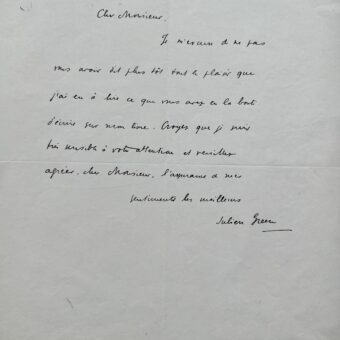 Cher Monsieur,
Je m'excuse de ne pas
vous avoir dit plus tôt tout le plaisir que
j'ai eu à lire ce que vous avez eu la bonté
d'écrire sur mon livre. Croyez que je suis
très sensible à votre attention et veuillez
agréer, cher Monsieur, l'assurance de mes
sentiments les meilleurs
Julien Green